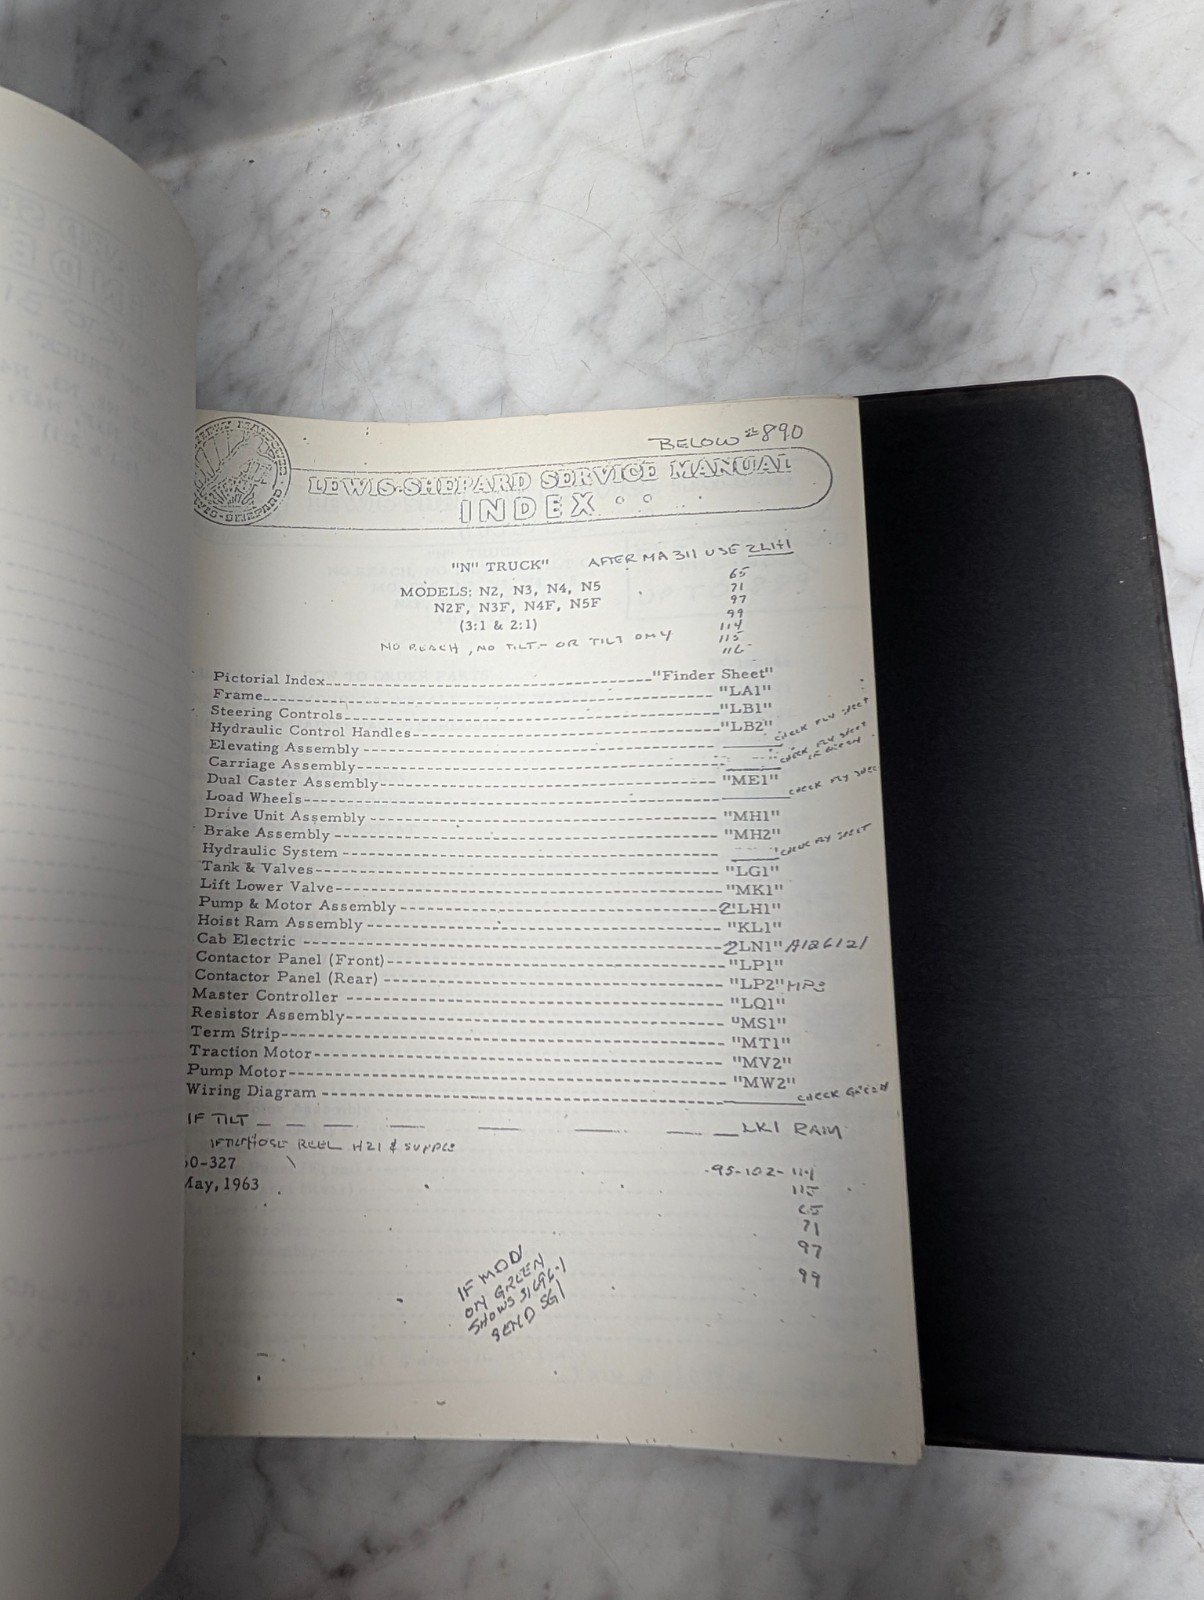 BELOW #890
LEWIS-SHEPARD SERVICE MANUAL
INDEX
"N" TRUCK" AFTER MA311 USE 2LH1
MODELS: N2, N3, N4, N5 65
N2F, N3F, N4F, N5F 71
(3:1 & 2:1) 97
99
114
NO REACH, NO TILT - OR TILT ONLY 115
116
Pictorial Index "Finder Sheet"
Frame "LA1"
Steering Controls "LB1"
Hydraulic Control Handles "LB2"
Elevating Assembly CHECK FLY SHEET
Carriage Assembly CHECK FLY SHEET
Dual Caster Assembly "ME1"
Load Wheels CHECK FLY SHEET
Drive Unit Assembly "MH1"
Brake Assembly "MH2"
Hydraulic System CHECK FLY SHEET
Tank & Valves "LG1"
Lift Lower Valve "MK1"
Pump & Motor Assembly 2LH1"
Hoist Ram Assembly "KL1"
Cab Electric 2LN1" A126121
Contactor Panel (Front) "LP1"
Contactor Panel (Rear) "LP2"
Master Controller "LQ1"
Resistor Assembly "MS1"
Term Strip "MT1"
Traction Motor "MV2"
Pump Motor "MW2"
Wiring Diagram CHECK GREEN
IF TILT LK1 RAM
IF TILT HOSE REEL H21 & SUPPLE
0-327 95-102-114
May, 1963 115
65
71
97
99
IF MOD
ON GREEN
SHOWS 31696-1
SEND SG1